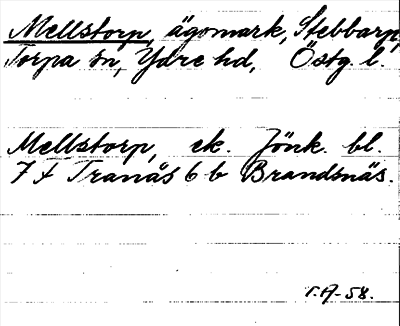 Mellstorp, ägomark, Stebbarp,
Torpa sn, Ydre hd, Östg. l.
Mellstorp, ek. Jönk. bl.
7 F Tranås 6 b Brandsnäs.
T.A-58.